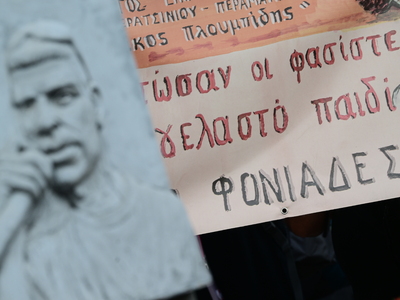 ΡΑΤΣΙΝΙΟΥ - ΠΕΡΑΜΑ
κος Πλουμπίδης"
τωσαν οι φασίστε
γελαστό παιδί
ΦΟΝΙΑΔΕΣ